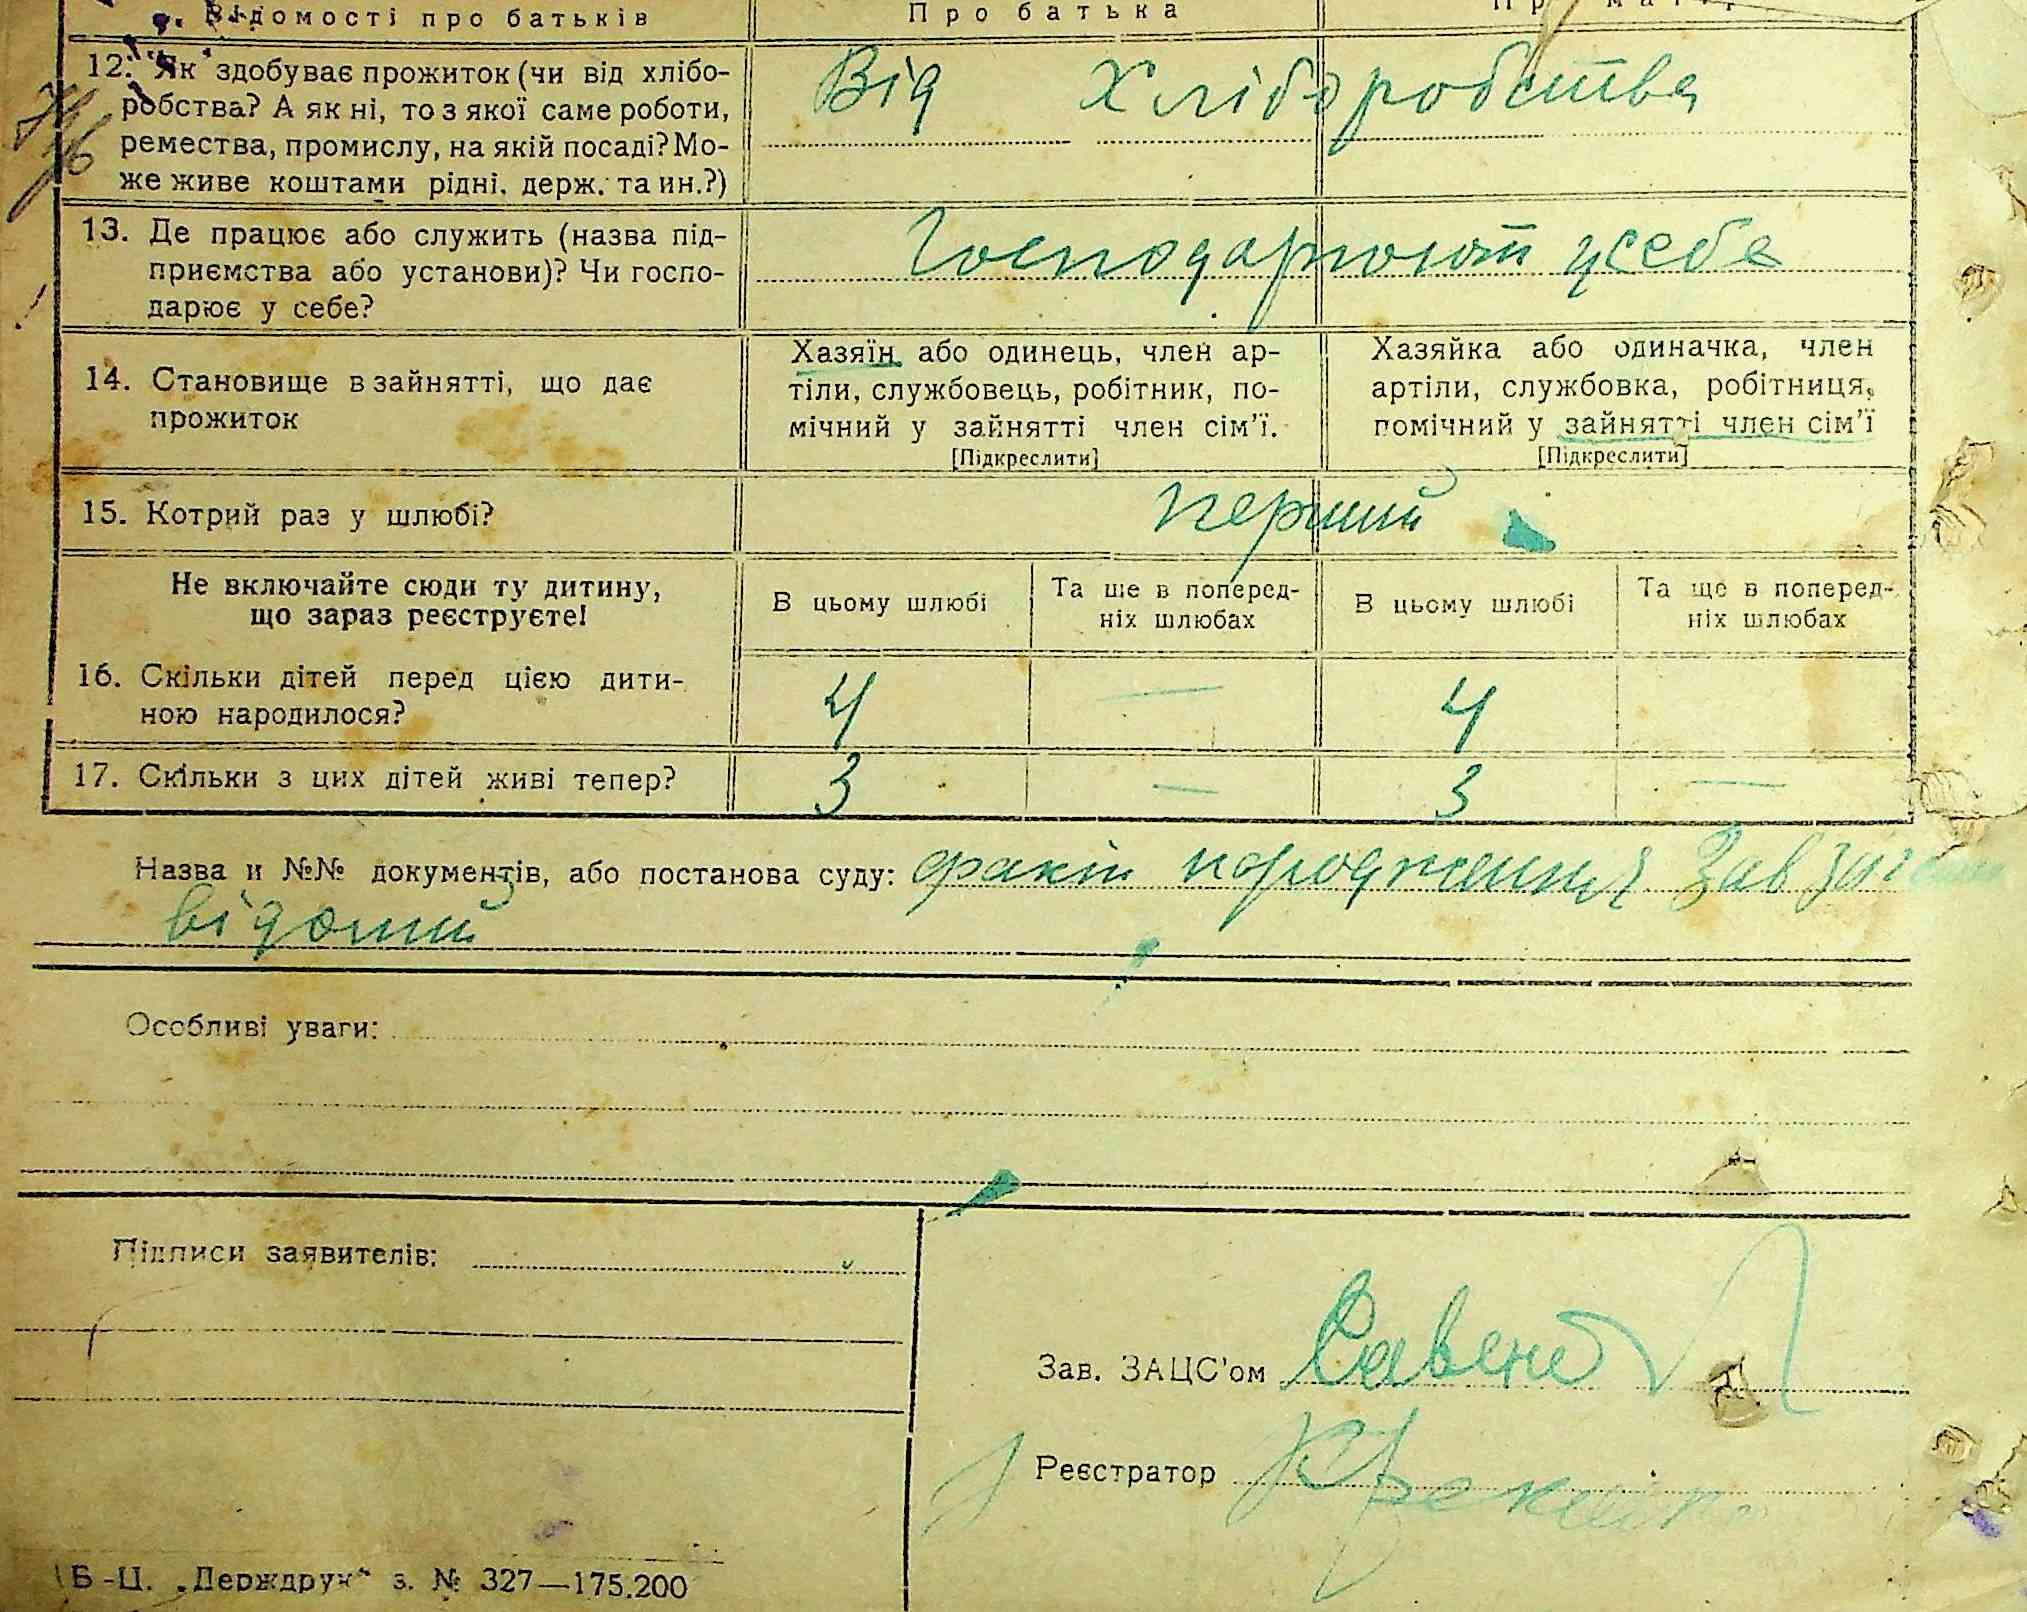 Відомості про батьків Про батька
12. Як здобуває прожиток (чи від хлібо-
робства? А як ні, то з якої саме роботи,
ремества, промислу, на якій посаді? Мо-
же живе коштами рідні, держ. та ин.?)
Від Хліборобства
13. Де працює або служить (назва під-
приємства або установи)? Чи госпо-
дарює у себе?
Господарюют усебе
14. Становище в зайнятті, що дає
прожиток
Хазяїн або одинець, член ар-
тіли, службовець, робітник, по-
мічний у зайнятті член сім'ї.
[Підкреслити]
Хазяйка або одиначка, член
артіли, службовка, робітниця,
помічний у зайнятті член сім'ї
[Підкреслити]
15. Котрий раз у шлюбі?
перший
Не включайте сюди ту дитину,
що зараз реєструєте!
В цьому шлюбі
Та ще в поперед-
ніх шлюбах
В цьому шлюбі
Та ще в поперед-
ніх шлюбах
16. Скільки дітей перед цією дити-
ною народилося?
4 — 4
17. Скільки з цих дітей живі тепер?
3 — 3 —
Назва и №№ документів, або постанова суду: факт народження Зав
відомий
Особливі уваги:
Підписи заявителів:
Зав. ЗАЦС'ом
Реєстратор
Б-Ц. „Держдрук" з. № 327—175.200